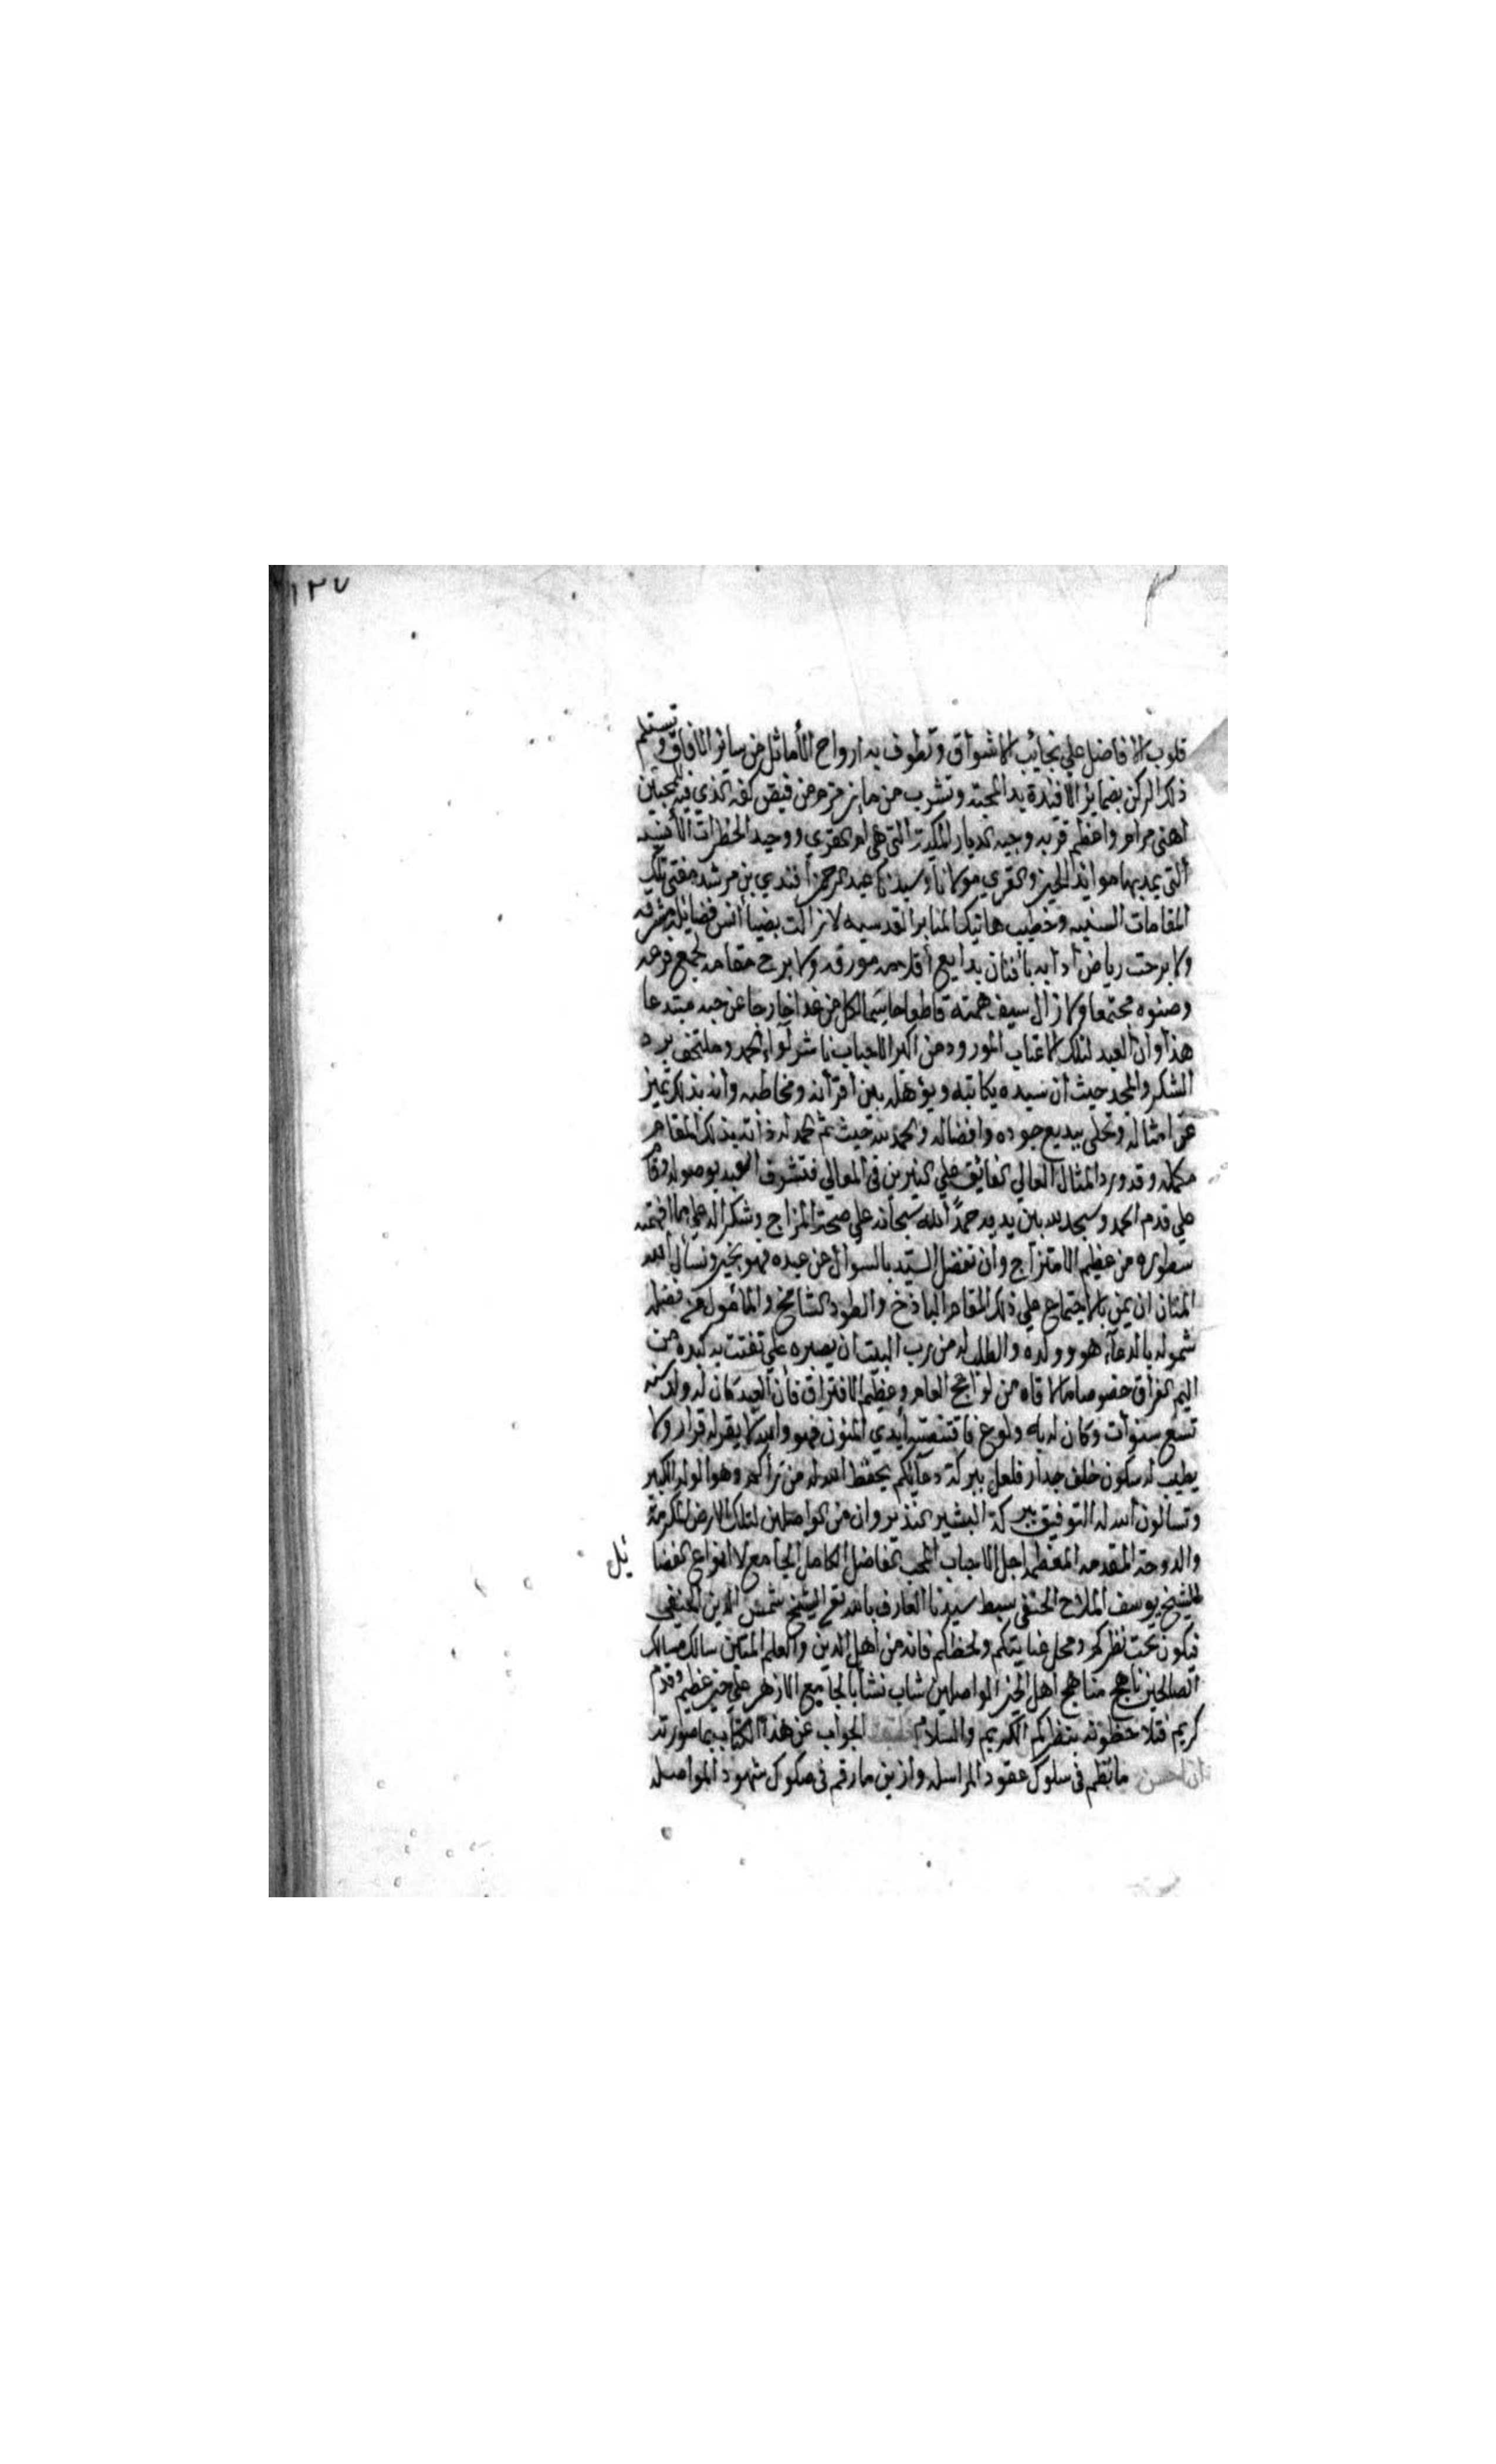 ١٣٧
قلوب الافاضل علي نجائب الاشواق وتطوف به ارواح الأماثل من سائر الافاق وتستلم
ذلك الركن بضمائر الافئدة يد المحبة وتشرب من ماء زمزم من فيض كفه الذي فيه للمحبين
اهنى مرام واعظم قربه وجيه الديار المكية التي هي ام القرى ووحيد الحظرات الأ
التي يمد بها موائد الخير والقرى مولانا وسيدنا عبد الرحمن أفندي بن مرشد مفتي تلك
المقامات السنيه وخطيب هاتيك المنابر القدسيه لا زالت بضيا أنس فضائله مشرقه
ولا برحت رياض ادابه بأفنان بدايع أقلامه مورقه ولا برح مقامه لجمع فرعه
وصنوه مجتمعا ولا زال سيف همته قاطعا حاسما لكل من غدا خارجا عن حبه مبتدعا
هذا وان العبد لتلك الاعتاب المورود من اكبر الاحباب ناشر لواء الحمد وملتحف برد
الشكر والمجد حيث أن سيده يكاتبه ويؤهله بين أقرانه ومخاطبه وأنه بذلك تميز
عن امثاله وتحلى ببديع جوده وافضاله والحمد لله حيث ثم الحمد له ذاته بذلك المقام
مكمله وقد ورد المثال العالي الفائق علي النيرين في المعالي فتشرف العبد بوصوله وقام
علي قدم الحمد وسجد لله بين يديه حمدًا لله سبحانه علي صحة المزاج وشكرا له علي ما افهمته
سطوره من عظيم الامتزاج وان تفضل السيد بالسوال عن عبده فهو بخير ونسأل الله
المنان ان يمن بالاجتماع علي ذلك المقام الباذخ والطود الشامخ والمأمول من فضله
شموله بالدعاء هو وولده والطلب له من رب البيت ان يصبره علي تفتت به كبده من
اليم الفراق خصوصا ما لاقاه من لواعج العام وعظيم الافتراق فأن العبد كان له ولد سنه
تسع سنوات وكان له به ولوع فاقتنصته أيدي المنون فهو والله لا يقر له قرار ولا
يطيب له سكون خلف جدار فلعل ببركة دعائكم يحفظ الله له من تراكم وهو الولد الكبير
وتسالون الله له التوفيق ببركة البشير النذير وان من الواصلين لتلك الارض المكرمة
والدوحة المقدمه المعظمه اجل الاحباب المحب الفاضل الكامل الجامع لانواع الفضائل
الشيخ يوسف الملاح الحنفي سبط سيدنا العارف بالله تع الشيخ شمس الدين الحنفي
فيكون تحت نظركم ومحل عنايتكم ولحظكم فانه من أهل الدين والعلم المتين سالك مسالك
الصالحين ناهج مناهج أهل الخير الواصلين شاب نشأ بالجامع الازهر علي خير عظيم وقدم
كريم فتلاحظونه بنظركم الكريم والسلام الجواب عن هذا الكتاب بما صورته
ان احسن ما نظم في سلوك عقود المراسله وازين ما رقم في صكوك شهود المواصله